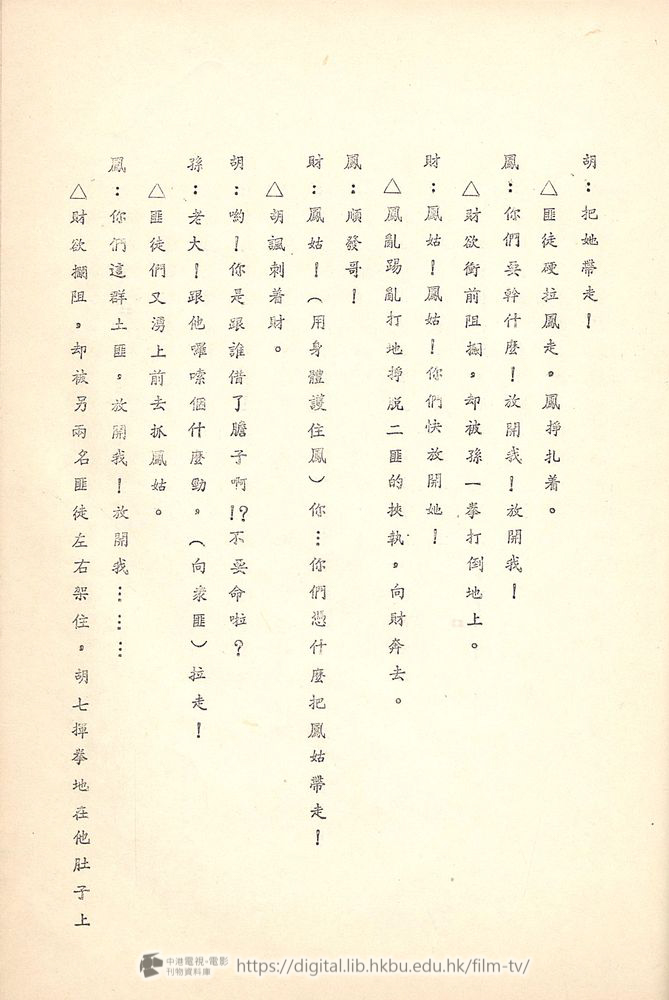 胡：把她帶走！
△匪徒硬拉鳳走。鳳掙扎着。
鳳：你們要幹什麼！放開我！放開我！
△財欲衝前阻攔，却被孫一拳打倒地上。
財：鳳姑！鳳姑！你們快放開她！
△鳳亂踢亂打地掙脫二匪的挾執，向財奔去。
鳳：順發哥！
財：鳳姑！（用身體護住鳳）你…你們憑什麼把鳳姑帶走！
△胡諷刺着財。
胡：喲！你是跟誰借了膽子啊!?不要命啦？
孫：老大！跟他囉嗦個什麼勁。（向衆匪）拉走！
△匪徒們又湧上前去抓鳳姑。
鳳：你們這群土匪，放開我！放開我………
△財欲攔阻，却被另兩名匪徒左右架住，胡七揮拳地在他肚子上
中港電視・電影
刊物資料庫
https://digital.lib.hkbu.edu.hk/film-tv/